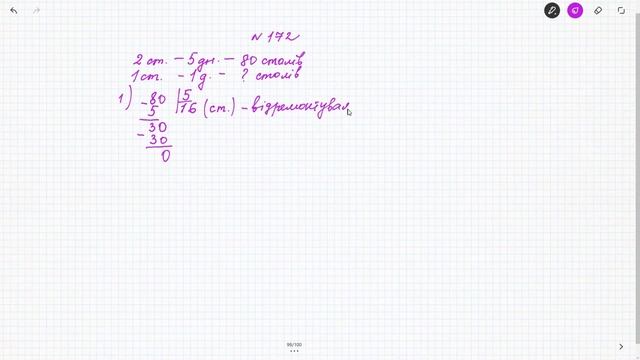 N 172
2 ст. – 5 дн. – 80 столів
1 ст. – 1 д. – ? столів
1) – 80 | 5
5 | 16 (ст.) – відремонтувал
30
– 30
0
99/100